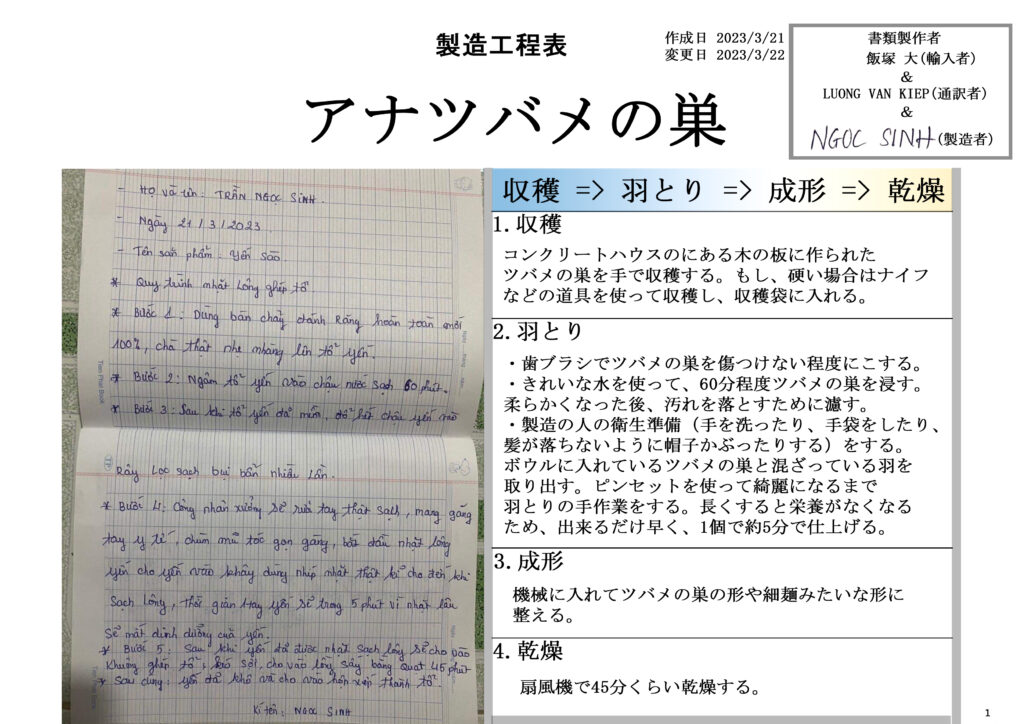 製造工程表
作成日 2023/3/21
変更日 2023/3/22
書類製作者
飯塚 大(輸入者)
&
LUONG VAN KIEP(通訳者)
&
NGOC SINH(製造者)
アナツバメの巣
- Họ và tên: TRẦN NGỌC SINH.
- Ngày 21/3/2023
- Tên sản phẩm: Yến Sào.
* Quy trình nhặt lông ghép tổ
* Bước 1: Dùng bàn chảy đánh Răng hoàn toàn mới
100%, chà thật nhẹ nhàng lên tổ yến.
* Bước 2: Ngâm tổ yến vào chậu nước sạch 60 phút.
* Bước 3: Sau khi tổ yến đã mềm, đổ hết chậu yến vào
Rây Lọc sạch bụi bẩn nhiều lần.
* Bước 4: Công nhân xưởng sẽ rửa tay thật sạch, mang găng
tay y tế, chùm mũ tóc gọn gàng, bắt đầu nhặt lông
yến cho yến vào khây dùng nhíp nhặt thật kĩ cho đến khi
Sạch lông, thời gian 1 tay yến sẽ trong 5 phút vì nhặt lâu
Sẽ mất dinh dưỡng của yến.
* Bước 5: Sau khi yến đã được nhặt sạch lông sẽ cho vào
Khuông ghép tổ, sợi, cho vào lồng sấy bằng quạt 45 phút
* Sau cùng: yến đã khô và cho vào hộp xếp thành tổ.
Kí tên: NGỌC SINH
収穫 => 羽とり => 成形 => 乾燥
1.収穫
コンクリートハウスのにある木の板に作られた
ツバメの巣を手で収穫する。もし、硬い場合はナイフ
などの道具を使って収穫し、収穫袋に入れる。
2.羽とり
・歯ブラシでツバメの巣を傷つけない程度にこする。
・きれいな水を使って、60分程度ツバメの巣を浸す。
柔らかくなった後、汚れを落とすために濾す。
・製造の人の衛生準備（手を洗ったり、手袋をしたり、
髪が落ちないように帽子かぶったりする）をする。
ボウルに入れているツバメの巣と混ざっている羽を
取り出す。ピンセットを使って綺麗になるまで
羽とりの手作業をする。長くすると栄養がなくなる
ため、出来るだけ早く、1個で約5分で仕上げる。
3.成形
機械に入れてツバメの巣の形や細麺みたいな形に
整える。
4.乾燥
扇風機で45分くらい乾燥する。
1